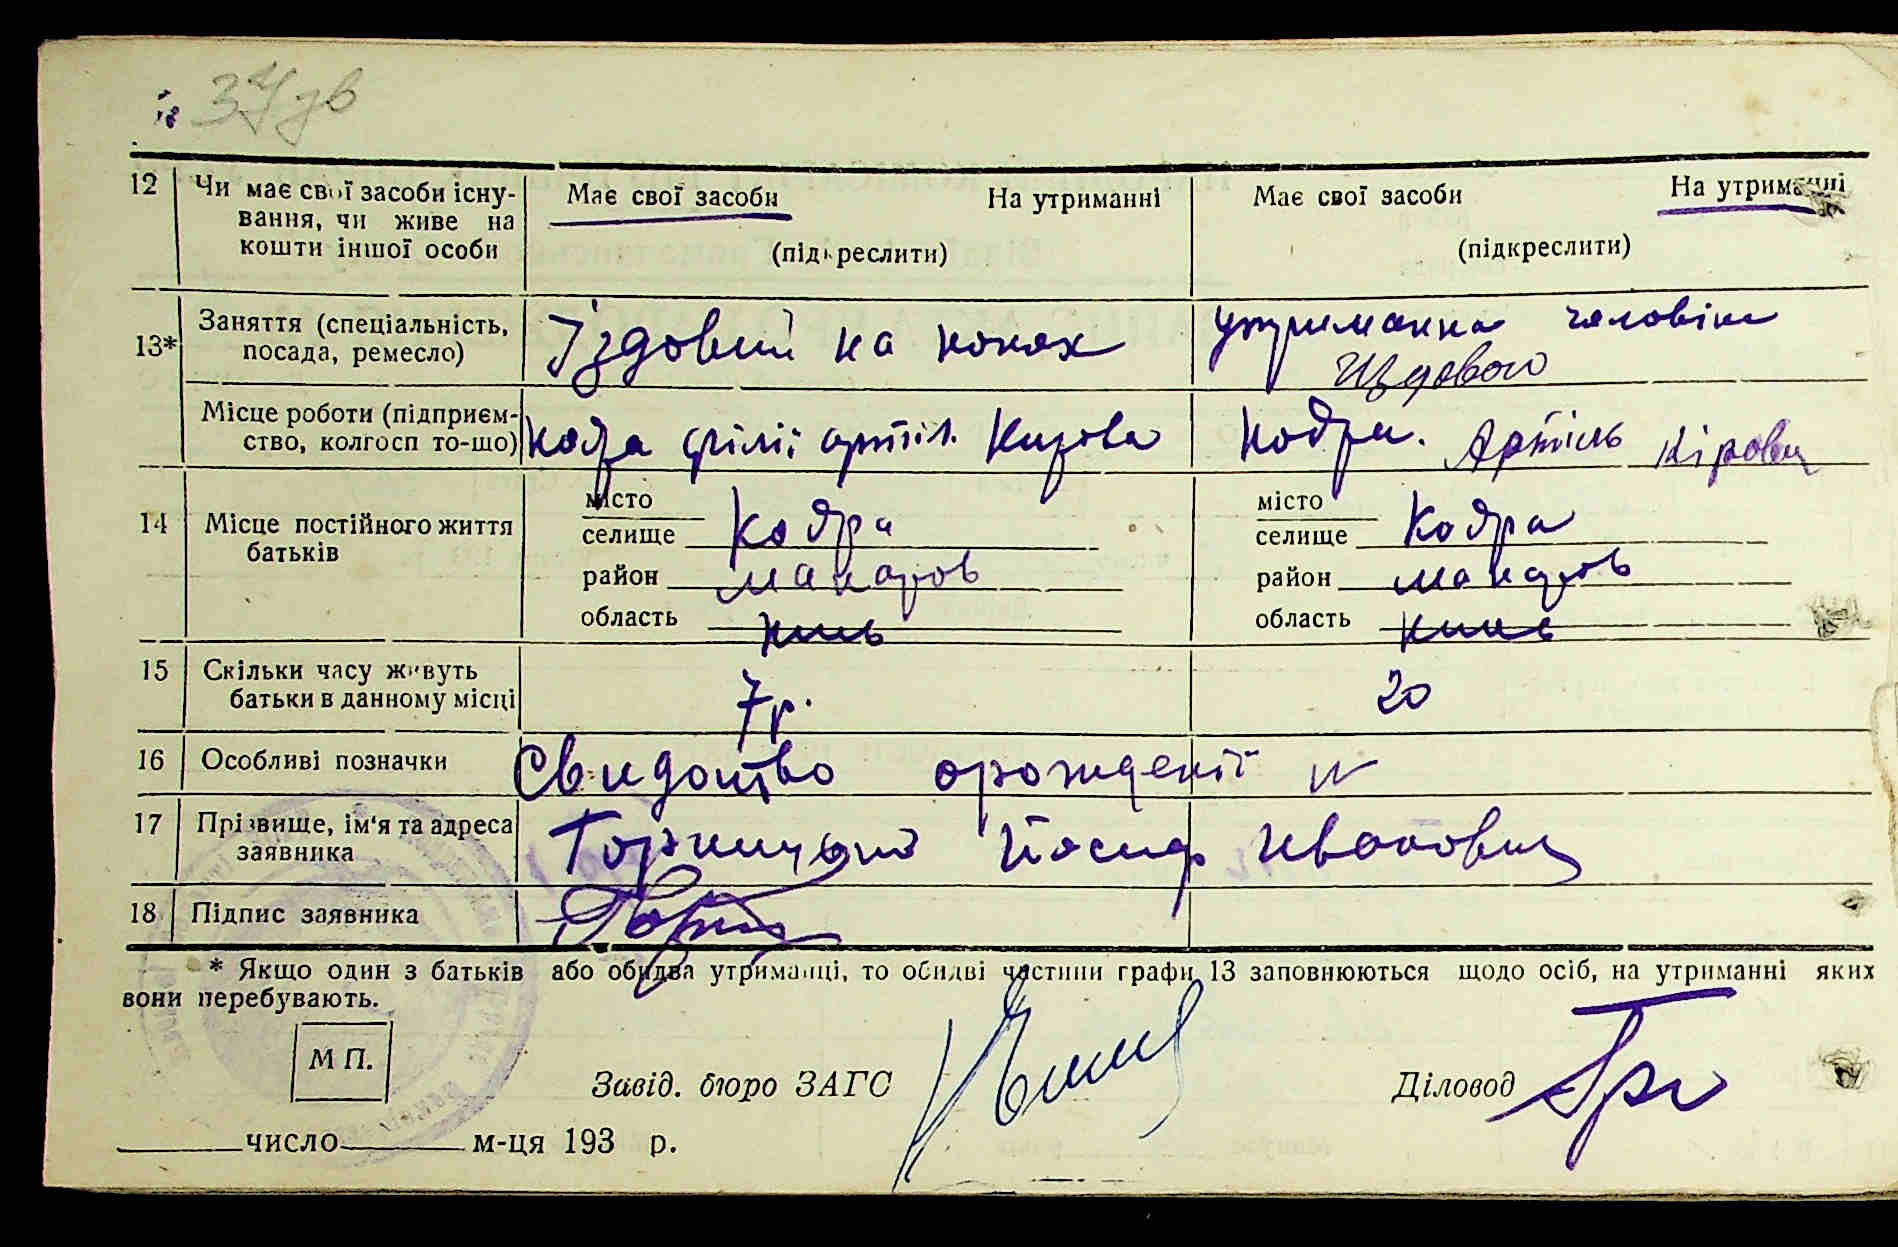 37 зв
12 Чи має свої засоби існу-
вання, чи живе на
кошти іншої особи
Має свої засоби На утриманні
(підкреслити)
Має свої засоби На утриманні
(підкреслити)
13* Заняття (спеціальність,
посада, ремесло)
Їздовий на конях
утриманка чоловіка
Їздового
Місце роботи (підприєм-
ство, колгосп то-що)
Кодра філії артіл. Кирова
Кодра. Артіль Кірова
14 Місце постійного життя
батьків
місто
селище Кодра
район Макаров
область Київ
місто
селище Кодра
район Макаров
область Київ
15 Скільки часу живуть
батьки в данному місці
7 р.
20
16 Особливі позначки
Свидоство орождениї №
17 Прізвище, ім'я та адреса
заявника
Йосиф Иванович
18 Підпис заявника
* Якщо один з батьків або обидва утриманці, то обидві частини графи 13 заповнюються щодо осіб, на утриманні яких
вони перебувають.
М П.
Завід. бюро ЗАГС
Діловод
число м-ця 193 р.